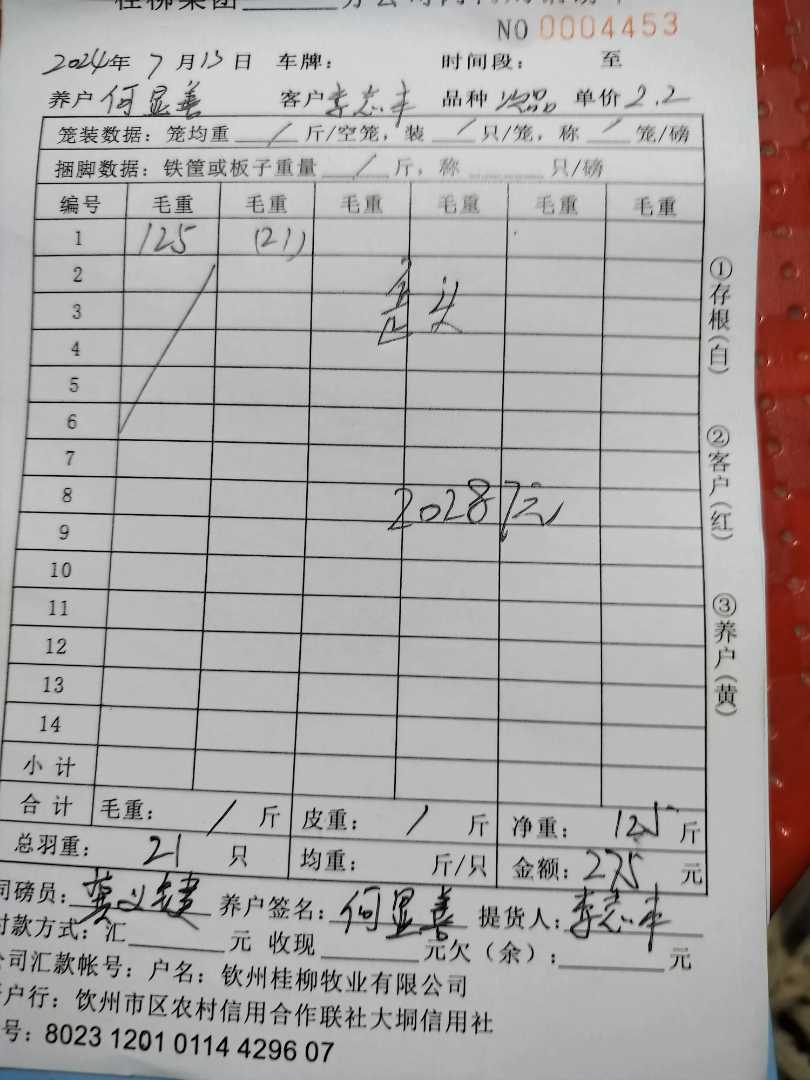 桂柳集团
NO 0004453
2024年 7月13日 车牌: 时间段: 至
养户 何显善 客户 李志丰 品种 次品 单价 2.2
笼装数据: 笼均重 / 斤/空笼, 装 / 只/笼, 称 / 笼/磅
捆脚数据: 铁筐或板子重量 / 斤, 称 只/磅
编号 毛重 毛重 毛重 毛重 毛重 毛重
1 125 (21)
2
3
4
5
6
7
8 20287元
9
10
11
12
13
14
小计
合计 毛重: / 斤 皮重: / 斤 净重: 125 斤
总羽重: 21 只 均重: 斤/只 金额: 275 元
司磅员: 养户签名: 何显善 提货人: 李志丰
付款方式: 汇 元 收现 元欠(余): 元
公司汇款帐号: 户名: 钦州桂柳牧业有限公司
开户行: 钦州市区农村信用合作联社大垌信用社
号: 8023 1201 0114 4296 07
①存根(白)
②客户(红)
③养户(黄)